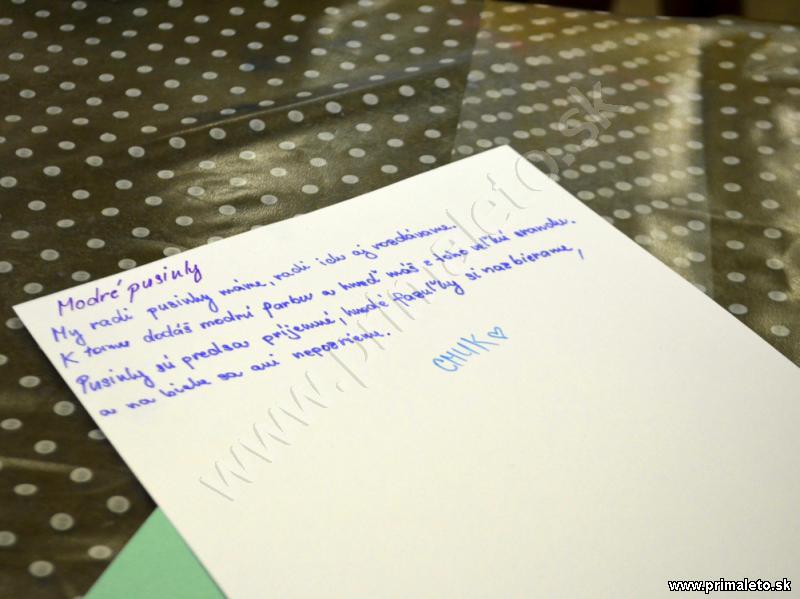 Modré pusinky
My radi pusinky máme, radi ich aj rozdávame.
K tomu dodáš modrú farbu a hneď máš z toho veľkú srandu.
Pusinky sú predsa príjemné, hnedé fazuľky si nazbierame,
a na biele sa ani nepozrieme.
CMUK ♡
www.primaleto.sk
www.primaleto.sk